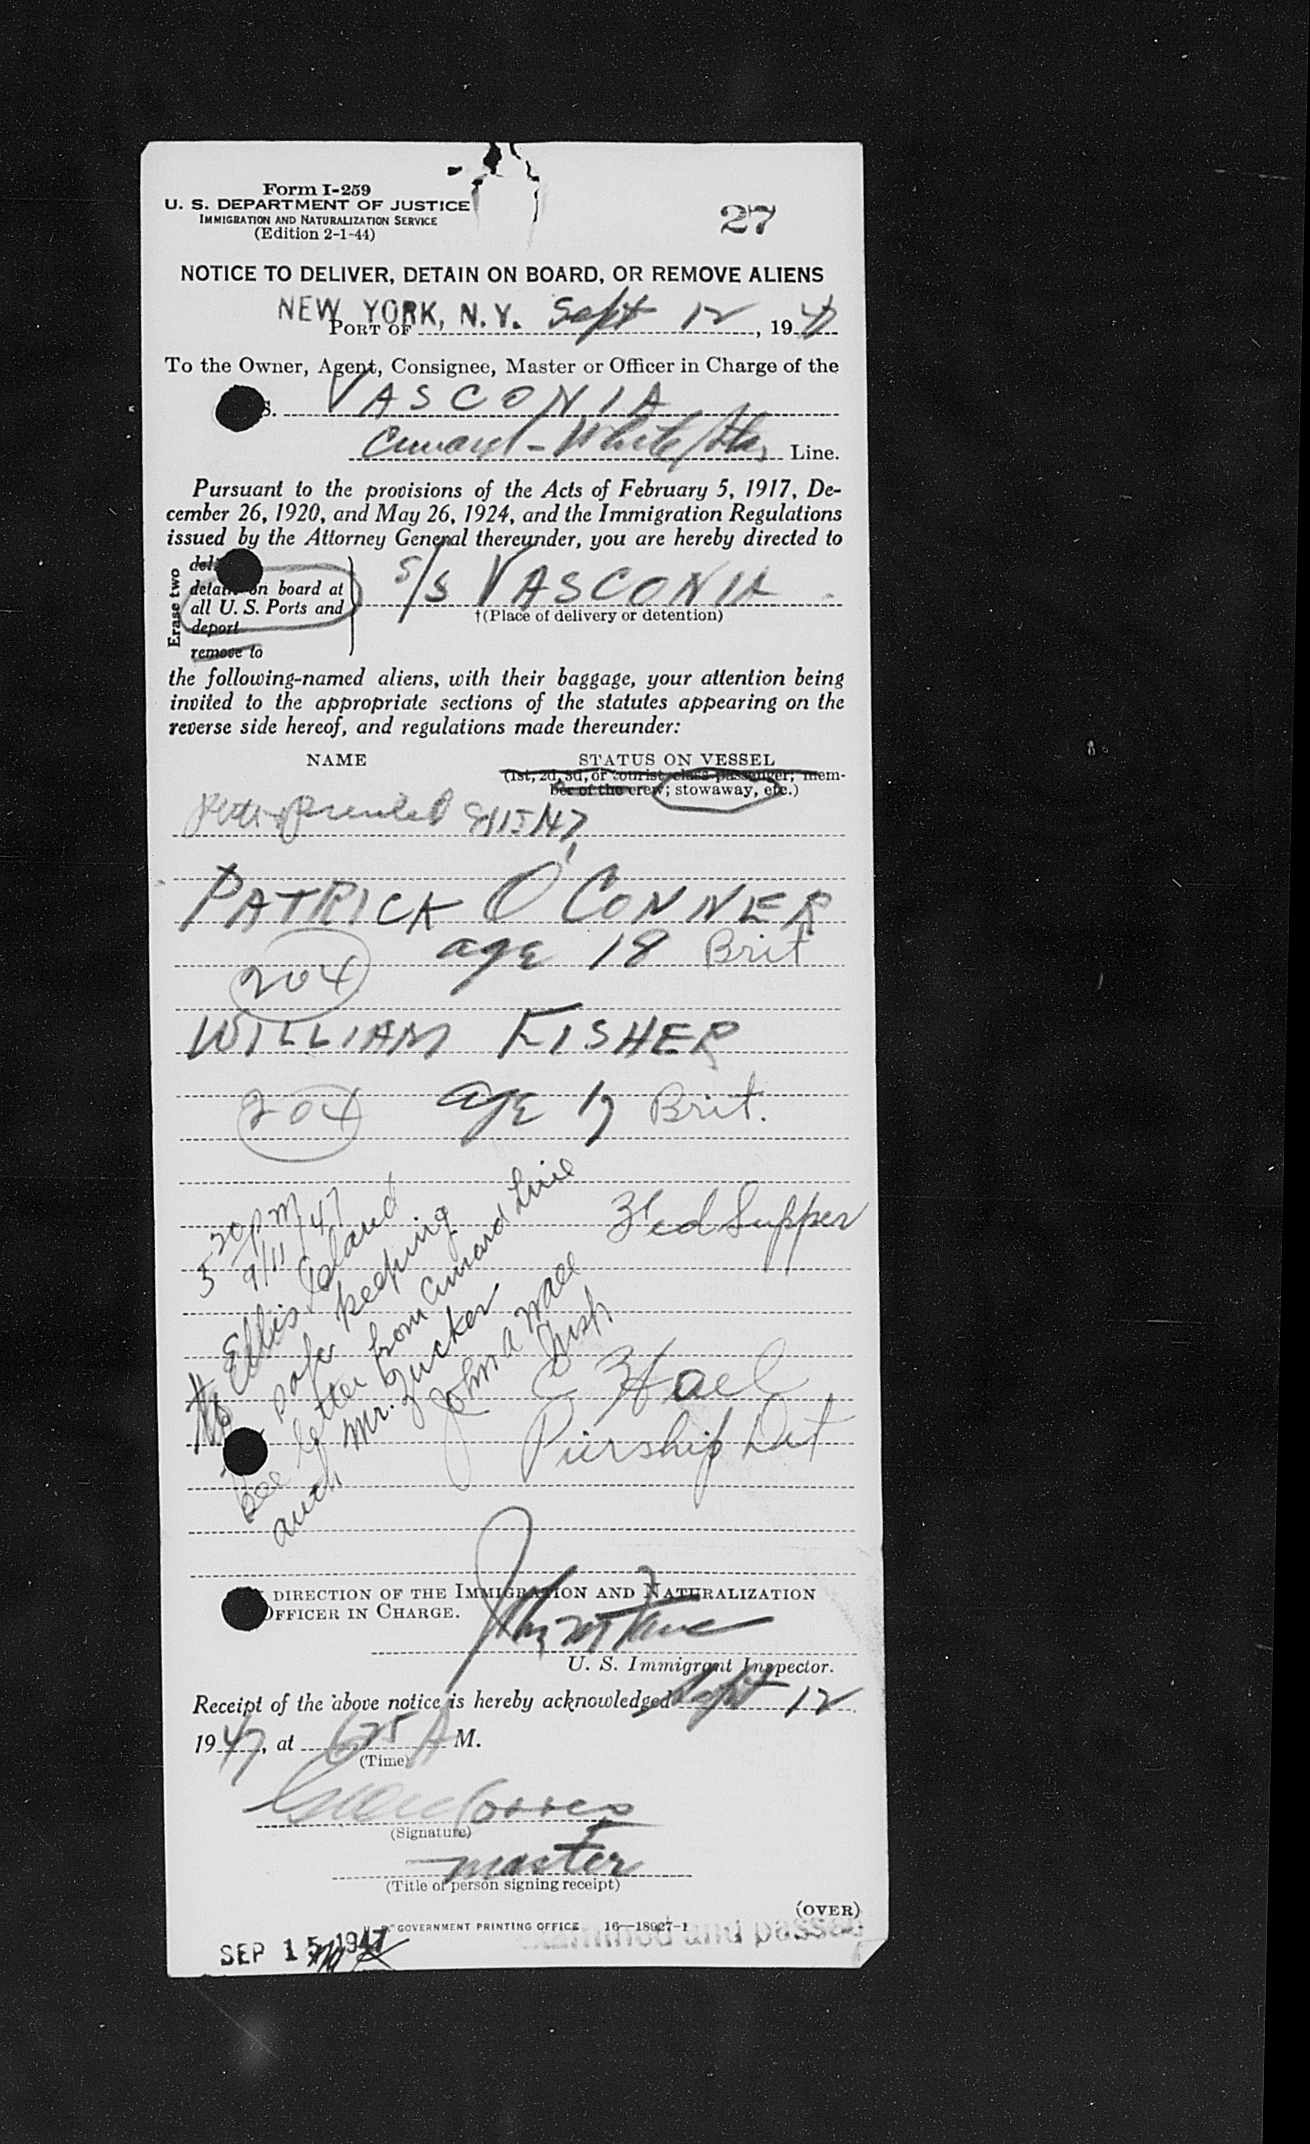 Form I-259
U. S. DEPARTMENT OF JUSTICE
IMMIGRATION AND NATURALIZATION SERVICE
(Edition 2-1-44)
27
NOTICE TO DELIVER, DETAIN ON BOARD, OR REMOVE ALIENS
NEW YORK, N. Y. Sept 12
PORT OF , 19 47
To the Owner, Agent, Consignee, Master or Officer in Charge of the
S. VASCONIA
Cunard-White Star Line.
Pursuant to the provisions of the Acts of February 5, 1917, De-
cember 26, 1920, and May 26, 1924, and the Immigration Regulations
issued by the Attorney General thereunder, you are hereby directed to
Erase two
detain on board at
all U. S. Ports and
deport
remove to
S/S VASCONIA
†(Place of delivery or detention)
the following-named aliens, with their baggage, your attention being
invited to the appropriate sections of the statutes appearing on the
reverse side hereof, and regulations made thereunder:
NAME STATUS ON VESSEL
(1st, 2d, 3d, or tourist class passenger; mem-
ber of the crew; stowaway, etc.)
9/15/47
PATRICK O'CONNER
204 age 18 Brit
WILLIAM FISHER
204 age 17 Brit.
5 20 PM
9/11/47
Ellis Island
safe keeping
See letter from Cunard Line
and Mr. Zucker
John A Wall
Insp
Fed Supper
Piership Det
DIRECTION OF THE IMMIGRATION AND NATURALIZATION
OFFICER IN CHARGE.
U. S. Immigrant Inspector.
Receipt of the above notice is hereby acknowledged Sept 12
1947, at 625 A M.
(Time)
(Signature)
master
(Title of person signing receipt)
(OVER)
U. S. GOVERNMENT PRINTING OFFICE 16—18927-1
SEP 15 1947
examined and passed